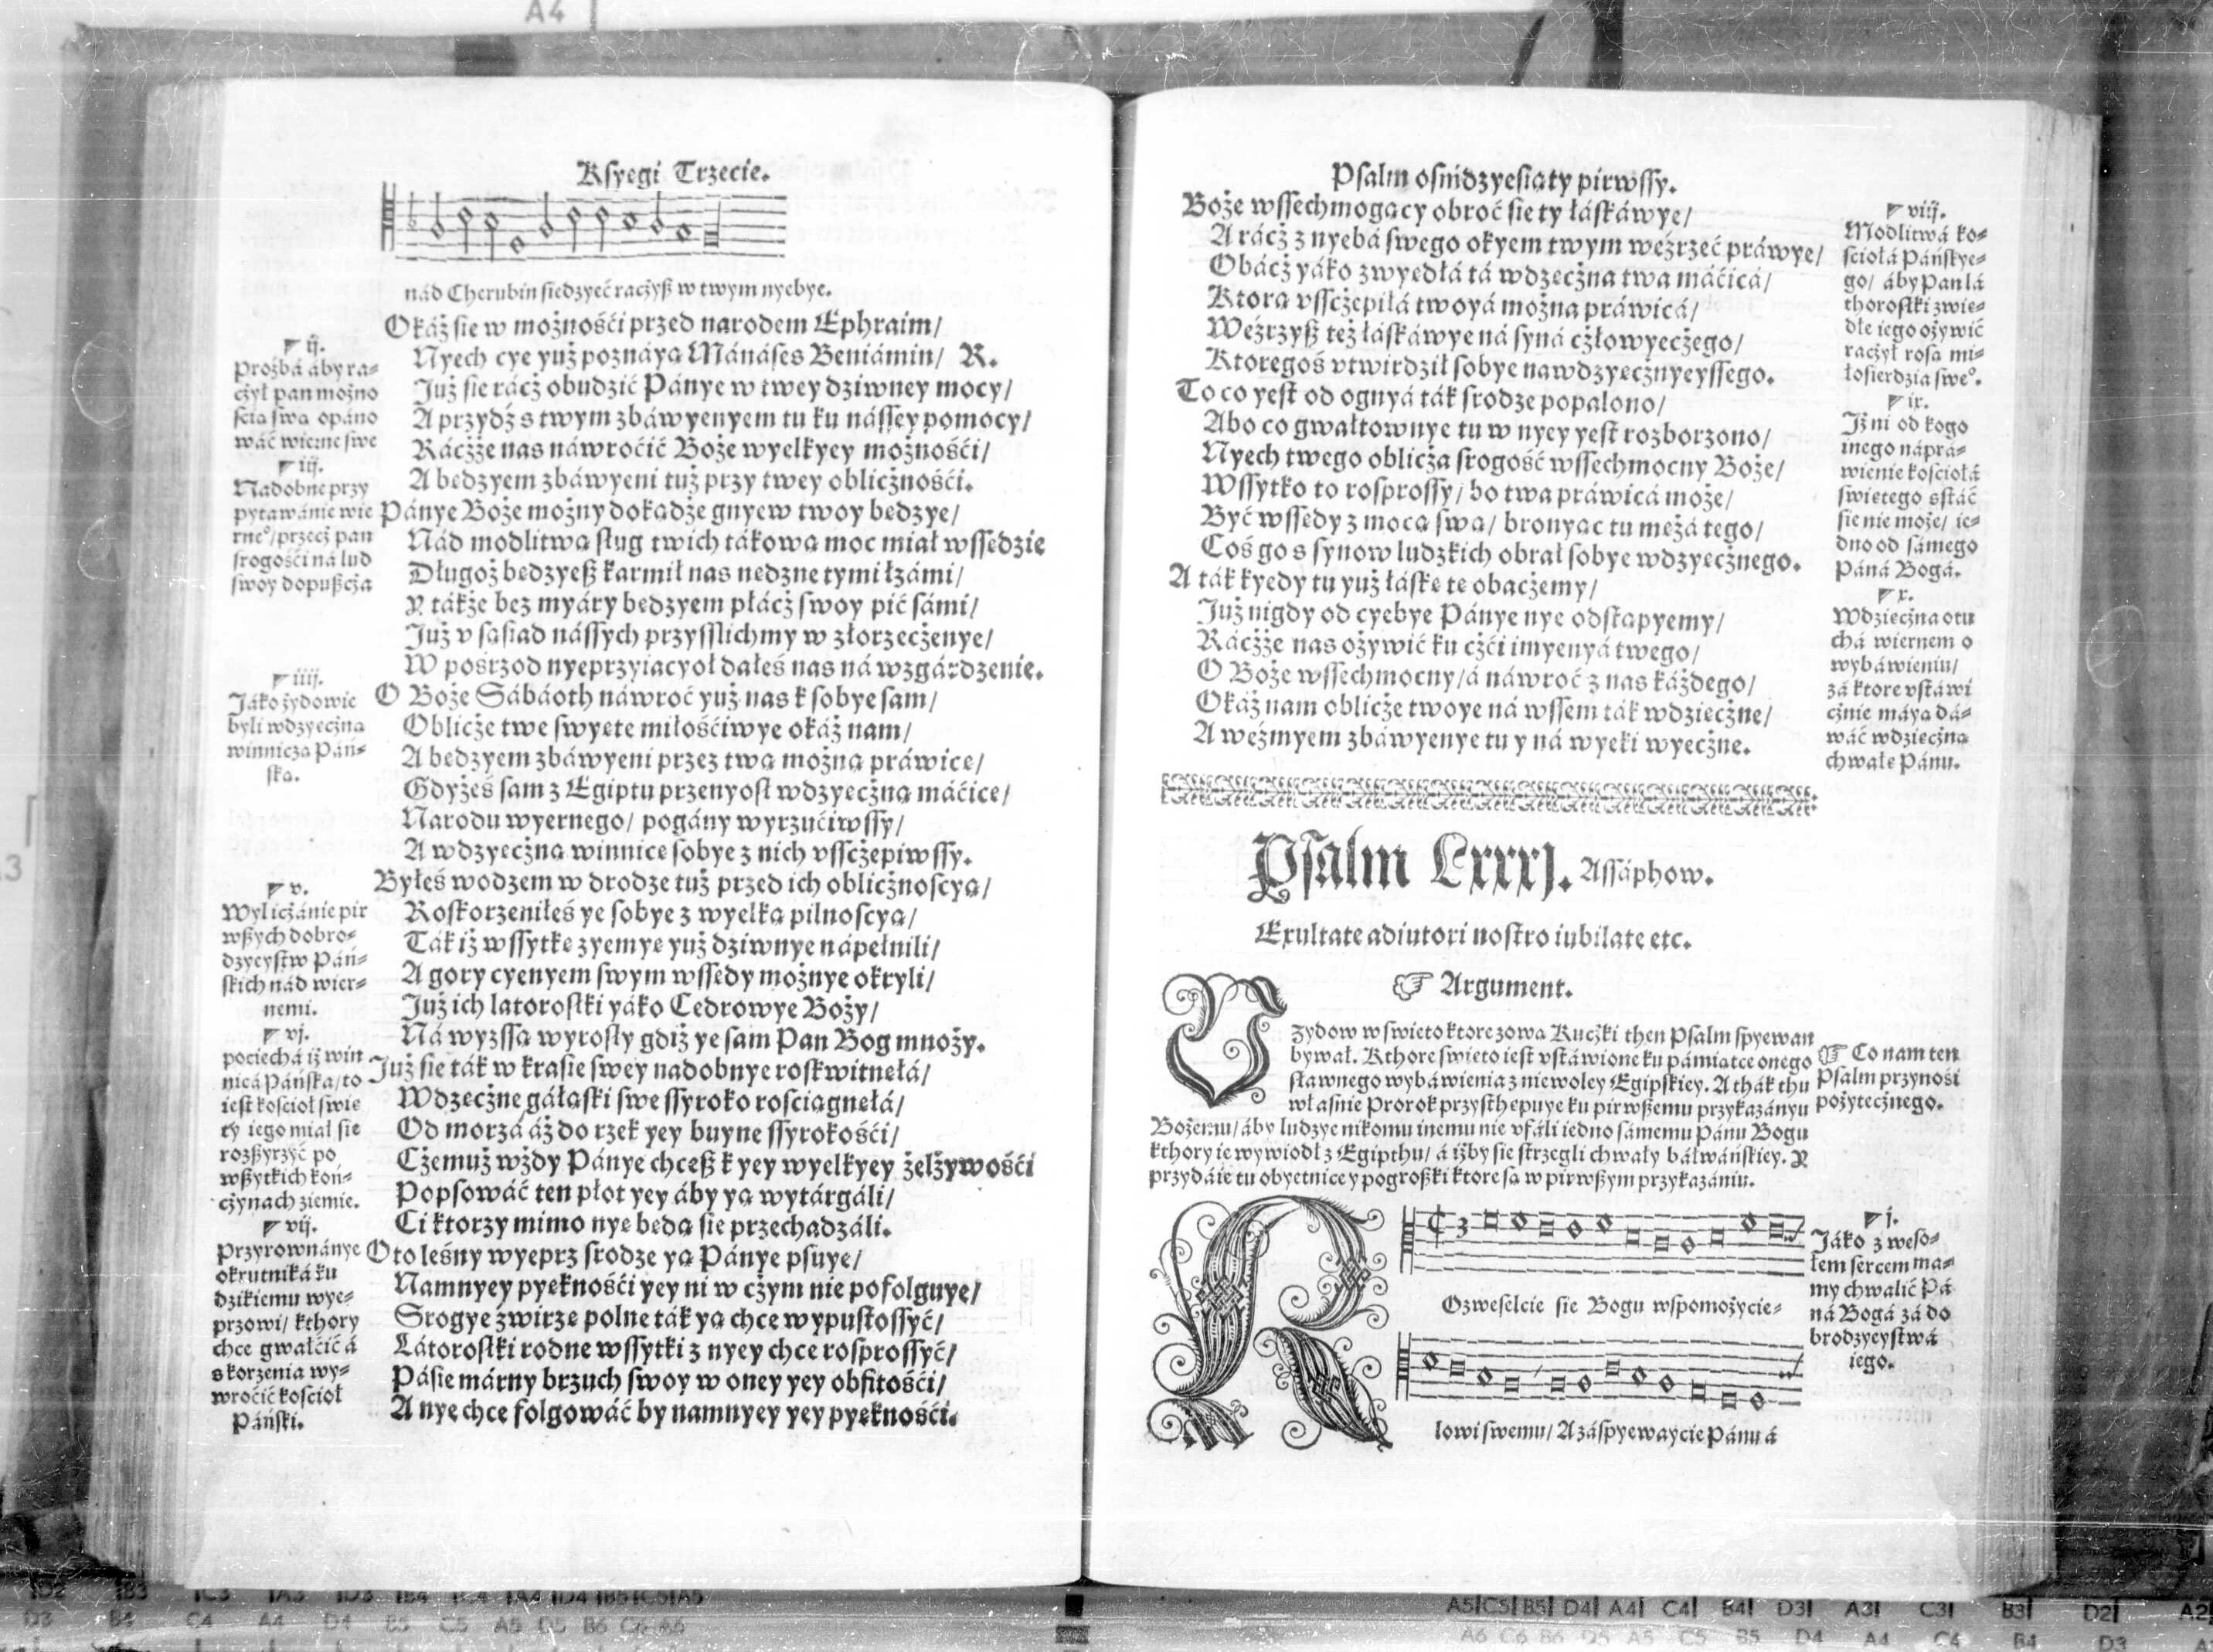 Ksyegi Trzecie.
nád Cherubin siedzyeć raczyß w twym nyebye.
Okaż sie w możnośći przed narodem Ephraim/
Nyech cye yuż poznáya Mánáses Beniámin/ R.
Już sie rácż obudzić Pánye w twey dziwney mocy/
A przydź s twym zbáwyenyem tu ku nássey pomocy/
Rácżże nas náwroćić Boże wyelkyey możnośći/
A będzyem zbáwyeni tuż przy twey oblicżnośći.
Pánye Boże możny dokądże gnyew twoy będzye/
Nád modlitwą sług twich tákową moc miał wssędzie
Długoż będzyeß karmił nas nędzne tymi łzámi/
Y tákże bez myáry będzyem płácż swoy pić sámi/
Już v sąsiad nássych przysslichmy w złorzecżenye/
W pośrzod nyeprzyiacyoł dałeś nas ná wzgárdzenie.
O Boże Sábáoth náwroć yuż nas k sobye sam/
Oblicże twe swyęte miłośćiwye okáż nam/
A będzyem zbáwyeni przez twą możną práwicę/
Gdyżeś sam z Egiptu przenyosł wdzyecżną máćicę/
Narodu wyernego/ pogány wyrzućiwssy/
A wdzyecżną winnicę sobye z nich vsscżepiwssy.
Byłeś wodzem w drodze tuż przed ich oblicżnoscyą/
Roskorzeniłeś ye sobye z wyelką pilnoscyą/
Ták iż wssytkę zyemyę yuż dziwnye nápełnili/
A gory cyenyem swym wssędy możnye okryli/
Już ich latorostki yáko Cedrowye Boży/
Ná wyzssą wyrosły gdiż ye sam Pan Bog mnoży.
Już sie ták w krasie swey nadobnye roskwitnęłá/
Wdzecżne gáłąski swe ssyroko rosciągnęłá/
Od morzá áż do rzek yey buyne ssyrokośći/
Cżemuż wżdy Pánye chceß k yey wyelkyey żelżywośći
Popsowáć ten płot yey áby yą wytárgáli/
Ci ktorzy mimo nye będą sie przechadzáli.
Oto leśny wyeprz srodze yą Pánye psuye/
Namnyey pyęknośći yey ni w cżym nie pofolguye/
Srogye zwirzę polne ták yą chce wypustossyć/
Látorostki rodne wssytki z nyey chce rosprossyć/
Pásie márny brzuch swoy w oney yey obfitośći/
A nye chce folgowáć by namnyey yey pyęknośći.
ij.
Prożbá áby ra-
cżył pan możno
ścią swą opáno
wáć wierne swe
iij.
Nadobne przy
pytawánie wie
rneº/ przecż pan
srogośći ná lud
swoy dopußcża
iiij.
Jáko żydowie
byli wdzyecżną
winnicżą Páń-
ską.
v.
Wylicżánie pir
wßych dobro-
dzyeystw Páń-
skich nád wier-
nemi.
vj.
pociechá iż win
nicá Páńska/ to
iest kościoł świę
ty iego miał się
rozßyrzyć po
wßytkich koń-
cżynach ziemie.
vij.
Przyrownánye
okrutniká ku
dzikiemu wye-
przowi/ kthory
chce gwałcić á
s korzenia wy-
wroćić kościoł
Páński.
Psalm osmdzyesiąty pirwssy.
Boże wssechmogący obroć sie ty łáskáwye/
A rácż z nyebá swego okyem twym weźrzeć práwye/
Obácż yáko zwyędłá tá wdzecżna twa máćicá/
Ktorą vsscżepiłá twoyá można práwicá/
Weźrzyß też łáskáwye ná syná cżłowyecżego/
Ktoregoś vtwirdził sobye nawdzyecżnyeyssego.
To co yest od ognyá ták srodze popalono/
Abo co gwałtownye tu w nyey yest rozborzono/
Nyech twego oblicża srogość wssechmocny Boże/
Wssytko to rosprossy/ bo twa práwicá może/
Być wssędy z mocą swą/ bronyąc tu mężá tego/
Coś go s synow ludzkich obrał sobye wdzyecżnego.
A ták kyedy tu yuż łáskę tę obacżemy/
Już nigdy od cyebye Pánye nye odstąpyemy/
Rácżże nas ożywić ku cżći imyenyá twego/
O Boże wssechmocny/ á náwroć z nas káżdego/
Okáż nam oblicże twoye ná wssem ták wdziecżne/
A weźmyem zbáwyenye tu y ná wyeki wyecżne.
viij.
Modlitwá ko-
ściołá Páńskye-
go/ áby Pan lá
thorostki zwię-
dłe iego ożywić
racżył rosą mi-
łosierdzia sweº.
ix.
Jż ni od kogo
inego náprá-
wienie kościołá
świętego sstáć
sie nie może/ ie-
dno od sámego
Páná Bogá.
x.
Wdziecżna otu
chá wiernem o
wybáwieniu/
zá ktore vstáwi
cżnie máyą dá-
wáć wdziecżną
chwałę Pánu.
Psalm Lxxxj. Assáphow.
Exultate adiutori nostro iubilate etc.
Argument.
V żydow w święto ktore zową Kucżki then Psalm spyewan
bywał. Kthore święto iest vstáwione ku pámiątce onego
sławnego wybáwienia z niewoley Egipskiey. A thák thu
właśnie Prorok przysthępuye ku pirwßemu przykazányu
Bożemu/ áby ludzye nikomu inemu nie vfáli iedno sámemu Pánu Bogu
kthory ie wywiodł z Egipthu/ á iżby sie strzegli chwały báłwáńskiey. Y
przydáie tu obyetnice y pogroßki ktore są w pirwßym przykazániu.
Co nam ten
Psalm przynosi
pożytecżnego.
ROzweselcie sie Bogu wspomożycie-
lowi swemu/ A záspyewaycie Pánu á
j.
Jáko z weso-
łem sercem ma-
my chwalić Pá
ná Bogá zá do
brodzyeystwá
iego.